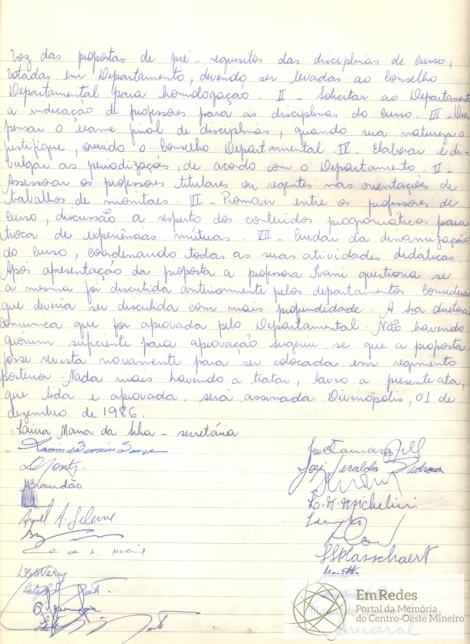 voz das propostas de pré-requisitos das disciplinas de curso,
votadas em Departamento, devendo ser levadas ao Conselho
Departamental para homologação. II - Solicitar ao Departamento
a indicação de professores para as disciplinas do curso. III - Dis
pensar o exame final de disciplinas, quando sua natureza o
justifique, ouvido o Conselho Departamental IV - Elaborar e di-
vulgar as periodizações, de acordo com o Departamento. V -
Assessorar os professores titulares ou regentes nas orientações de
trabalhos de monitores. VI - Promover entre os professores de
curso, discussão a respeito dos conteúdos programáticos para
troca de experiências mútuas. VII - Cuidar da dinamização
do curso, coordenando todas as suas atividades didáticas.
Após apresentação da proposta a professora Ivani questiona se
a mesma foi discutida anteriormente pelos departamentos. Considera
que deveria ser discutida com mais profundidade. A Sra diretora
comunica que foi aprovada pelo Departamental. Não havendo
quorum suficiente para aprovação sugeriu-se que a proposta
fosse revista novamente para ser colocada em regimento
posterior. Nada mais havendo a tratar, lavro a presente ata,
que lida e aprovada, será assinada Divinópolis, 01 de
dezembro de 1986.
Maria da Silva - secretária
José Geraldo Pedrosa
Brandão
Michelini
Plasschaert
Amaral
EmRedes
Portal da Memória
do Centro-Oeste Mineiro